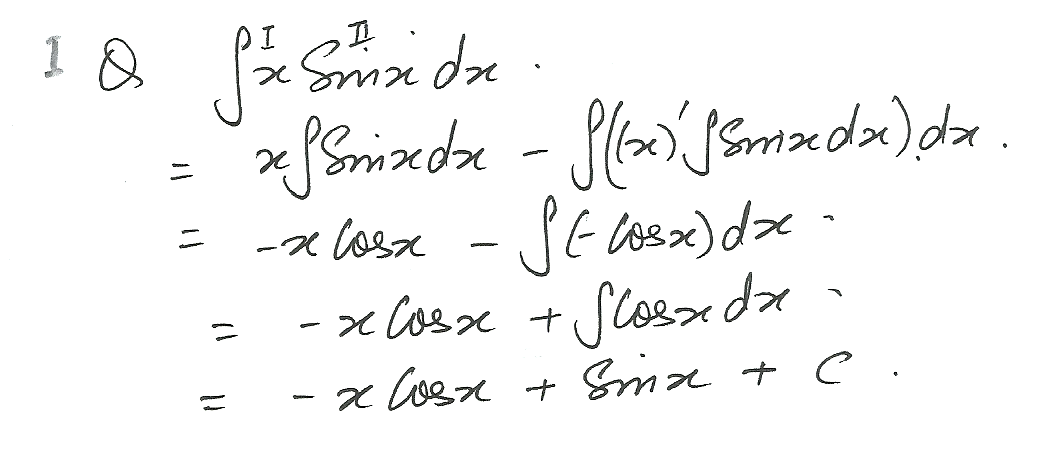 I Q ∫ x^I Sin x^II dx .
= x∫Sinxdx - ∫((x)'∫Sinxdx).dx .
= -x Cosx - ∫(-Cosx)dx .
= - x Cosx + ∫Cosx dx .
= - x Cosx + Sinx + C .